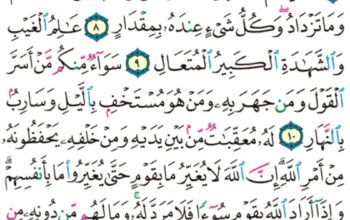 وَمَا تَزْدَادُ ۖ وَكُلُّ شَىْءٍ عِندَهُۥ بِمِقْدَارٍ ٨ عَـٰلِمُ ٱلْغَيْبِ
وَٱلشَّهَـٰدَةِ ٱلْكَبِيرُ ٱلْمُتَعَالِ ٩ سَوَآءٌ مِّنكُم مَّنْ أَسَرَّ
ٱلْقَوْلَ وَمَن جَهَرَ بِهِۦ وَمَنْ هُوَ مُسْتَخْفٍۭ بِٱلَّيْلِ وَسَارِبٌۢ
بِٱلنَّهَارِ ١٠ لَهُۥ مُعَقِّبَـٰتٌ مِّنۢ بَيْنِ يَدَيْهِ وَمِنْ خَلْفِهِۦ يَحْفَظُونَهُۥ
مِنْ أَمْرِ ٱللَّهِ ۗ إِنَّ ٱللَّهَ لَا يُغَيِّرُ مَا بِقَوْمٍ حَتَّىٰ يُغَيِّرُوا۟ مَا بِأَنفُسِهِمْ ۗ
وَإِذَآ أَرَادَ ٱللَّهُ بِقَوْمٍ سُوٓءًا فَلَا مَرَدَّ لَهُۥ ۚ وَمَا لَهُم مِّن دُونِهِۦ مِن